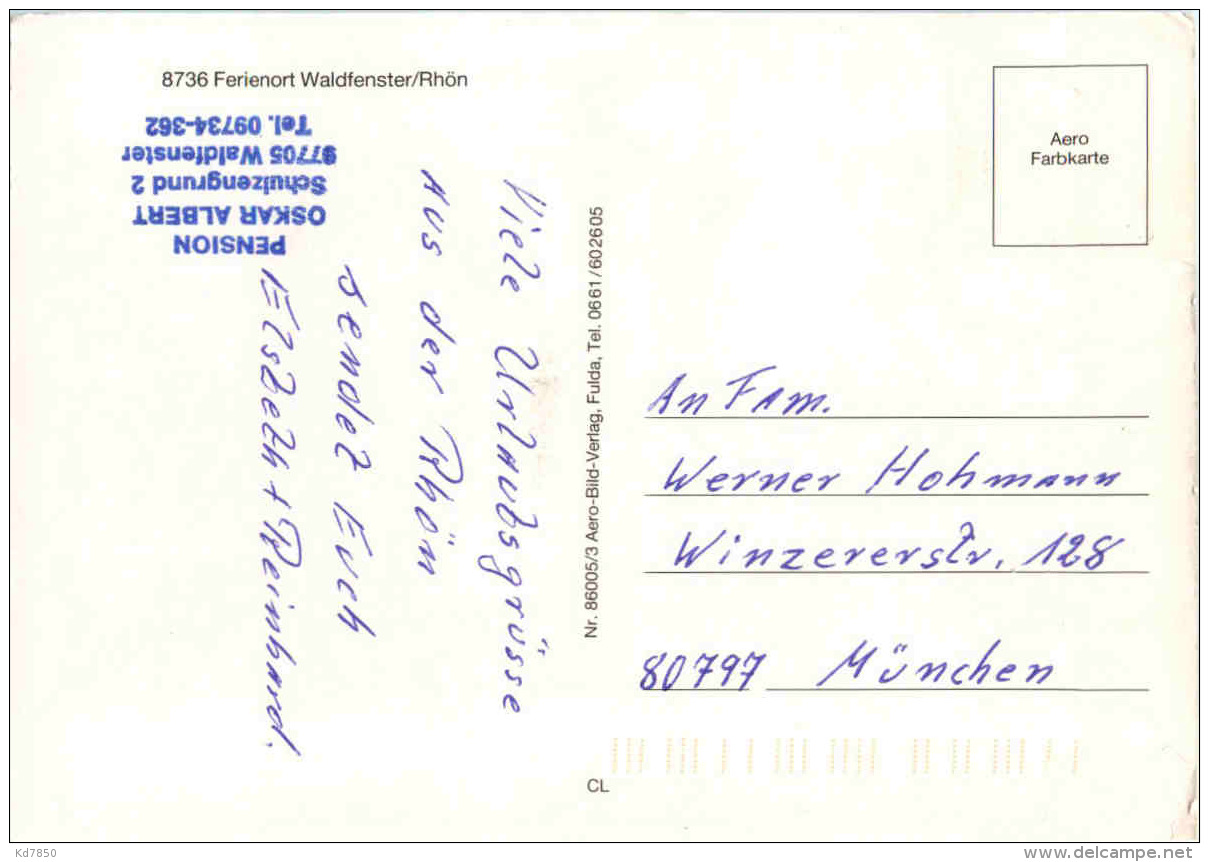 8736 Ferienort Waldfenster/Rhön
PENSION
OSKAR ALBERT
Schulzengrund 2
97705 Waldfenster
Tel. 09734-362
Viele Urlaubsgrüsse
aus der Rhön
sendet Euch
Elsbeth + Reinhard.
Nr. 86005/3 Aero-Bild-Verlag, Fulda, Tel. 0661/602605
CL
Aero
Farbkarte
An Fam.
Werner Hohmann
Winzererstr. 128
80797 München
Kd7850
delcampe.net